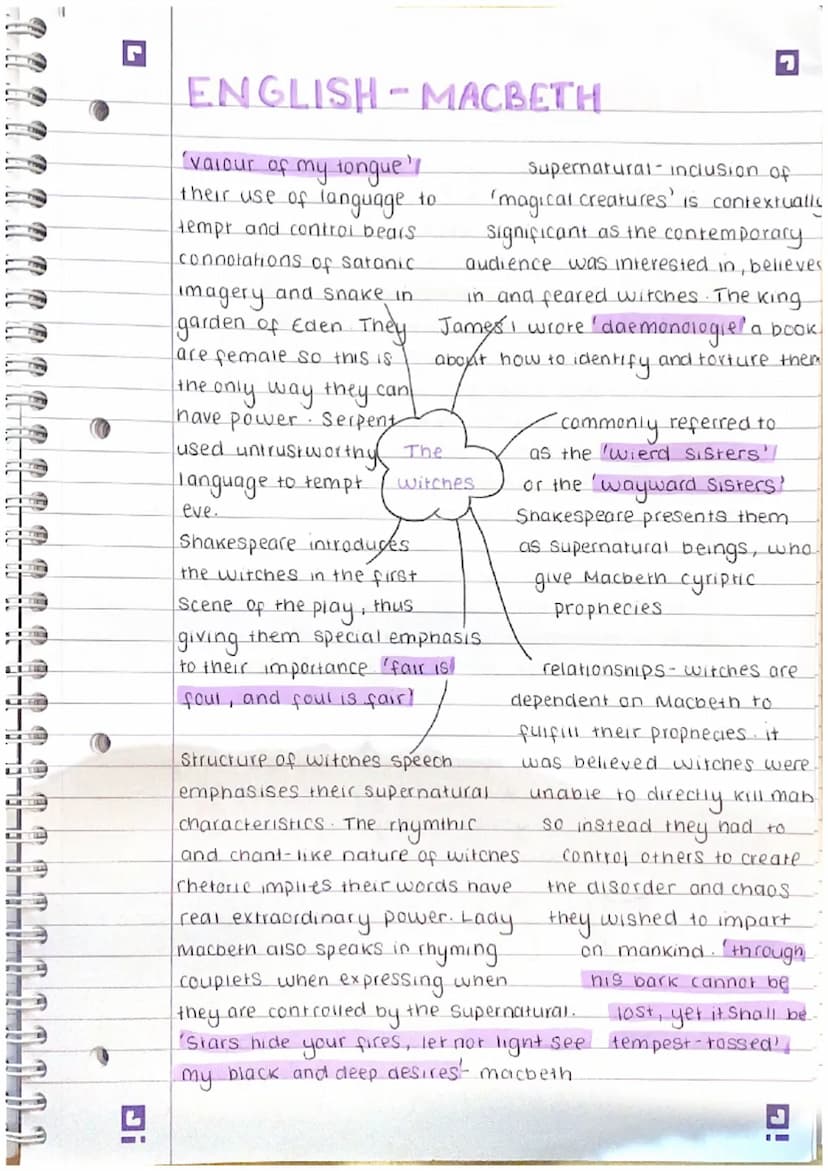 ENGLISH - MACBETH
'valour of my tongue'
their use of language to
tempt and control bears
connotations of satanic
imagery and snake in
garden of Eden. They
are female so this is
the only way they can
have power. Serpent
used untrustworthy
language to tempt
eve.
Supernatural - inclusion of
'magical creatures' is contextually
significant as the contemporary
audience was interested in, believes
in and feared witches. The king
James I wrote 'daemonologie' a book
about how to identify and torture them
The
witches
commonly referred to
as the 'wierd sisters'
or the 'wayward sisters'
Shakespeare presents them
as supernatural beings, who
give Macbeth cyriptic
prophecies
Shakespeare introduces
the witches in the first
scene of the play, thus
giving them special emphasis
to their importance 'fair is
foul, and foul is fair'
relationships - witches are
dependent on Macbeth to
fulfill their prophecies. it
was believed witches were
unable to directly kill man
so instead they had to
control others to create
the disorder and chaos
they wished to impart
on mankind. 'through
his bark cannot be
lost, yet it shall be
tempest-tossed'
Structure of witches speech
emphasises their supernatural
characteristics. The rhymthic
and chant-like nature of witches
rhetoric implies their words have
real extraordinary power. Lady
Macbeth also speaks in rhyming
couplets when expressing when
they are controlled by the supernatural.
'Stars hide your fires, let not light see
my black and deep desires' - macbeth